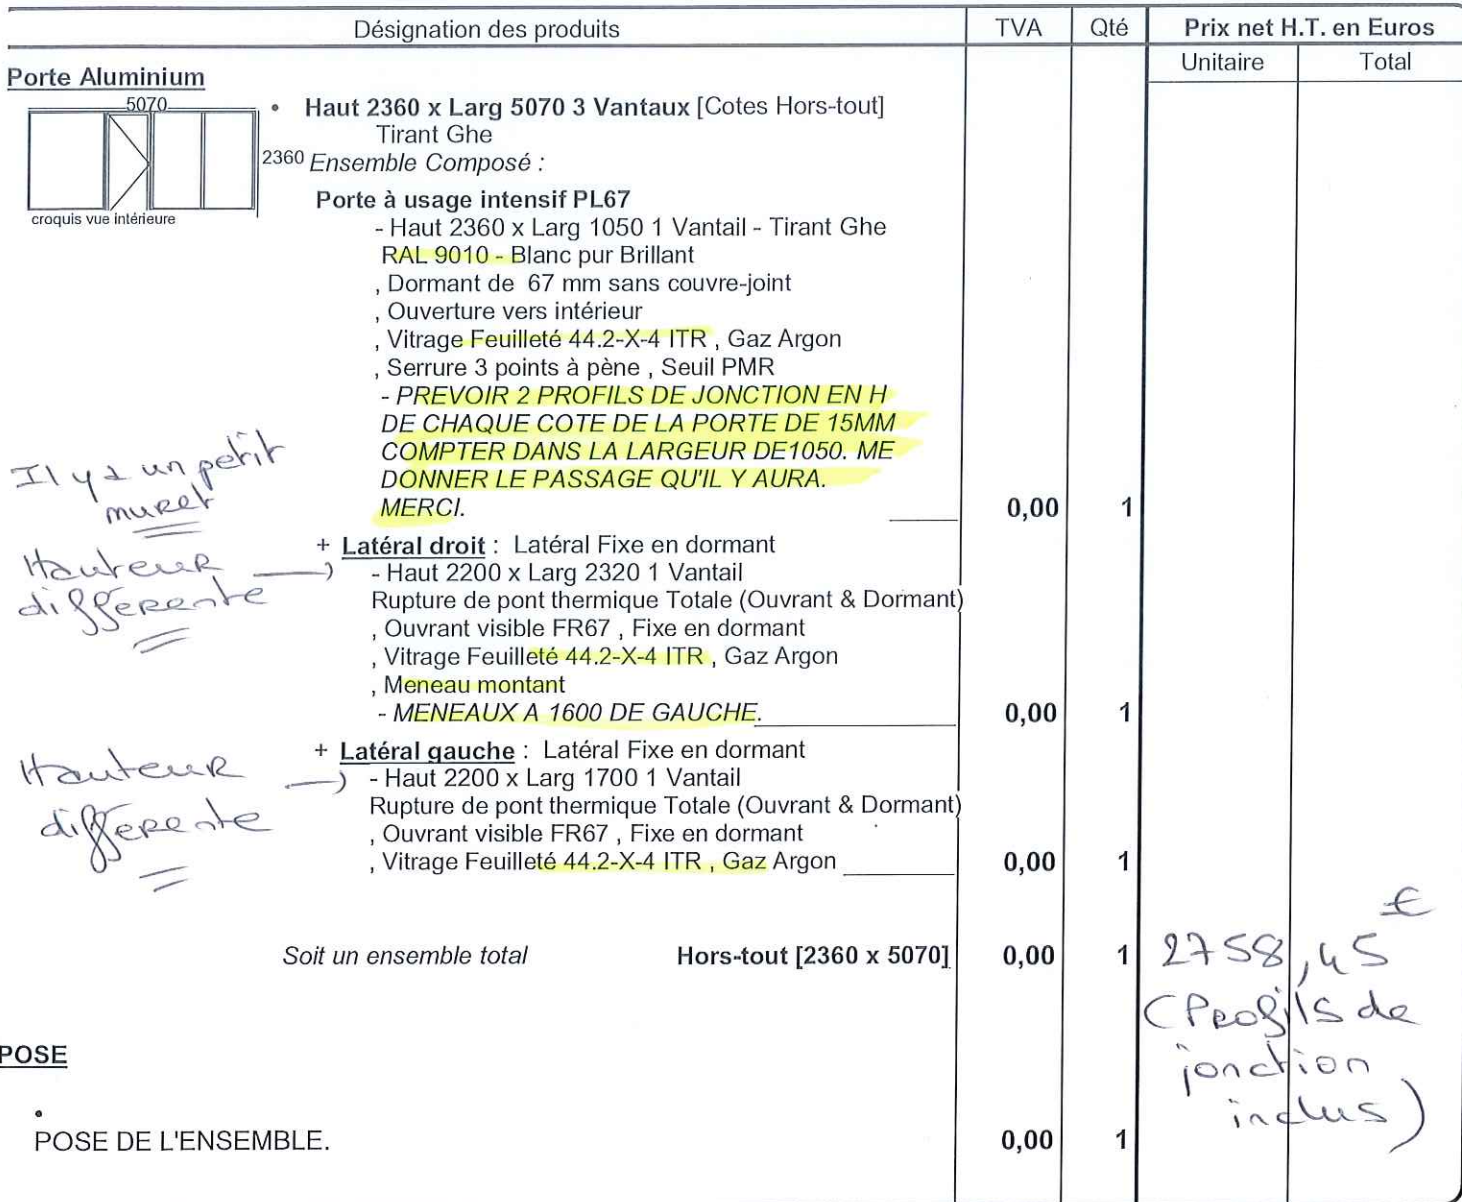 Désignation des produits TVA Qté Prix net H.T. en Euros
Unitaire Total
Porte Aluminium
5070
2360
croquis vue intérieure
• Haut 2360 x Larg 5070 3 Vantaux [Cotes Hors-tout]
Tirant Ghe
Ensemble Composé :
Porte à usage intensif PL67
- Haut 2360 x Larg 1050 1 Vantail - Tirant Ghe
RAL 9010 - Blanc pur Brillant
, Dormant de 67 mm sans couvre-joint
, Ouverture vers intérieur
, Vitrage Feuilleté 44.2-X-4 ITR , Gaz Argon
, Serrure 3 points à pène , Seuil PMR
- PREVOIR 2 PROFILS DE JONCTION EN H
DE CHAQUE COTE DE LA PORTE DE 15MM
COMPTER DANS LA LARGEUR DE1050. ME
DONNER LE PASSAGE QU'IL Y AURA.
MERCI. 0,00 1
Il y a un petit
muret
+ Latéral droit : Latéral Fixe en dormant
Hauteur
différente
- Haut 2200 x Larg 2320 1 Vantail
Rupture de pont thermique Totale (Ouvrant & Dormant)
, Ouvrant visible FR67 , Fixe en dormant
, Vitrage Feuilleté 44.2-X-4 ITR , Gaz Argon
, Meneau montant
- MENEAUX A 1600 DE GAUCHE. 0,00 1
+ Latéral gauche : Latéral Fixe en dormant
Hauteur
différente
- Haut 2200 x Larg 1700 1 Vantail
Rupture de pont thermique Totale (Ouvrant & Dormant)
, Ouvrant visible FR67 , Fixe en dormant
, Vitrage Feuilleté 44.2-X-4 ITR , Gaz Argon 0,00 1
Soit un ensemble total Hors-tout [2360 x 5070] 0,00 1 2758,45 €
(Profils de
jonction
inclus)
POSE
•
POSE DE L'ENSEMBLE. 0,00 1